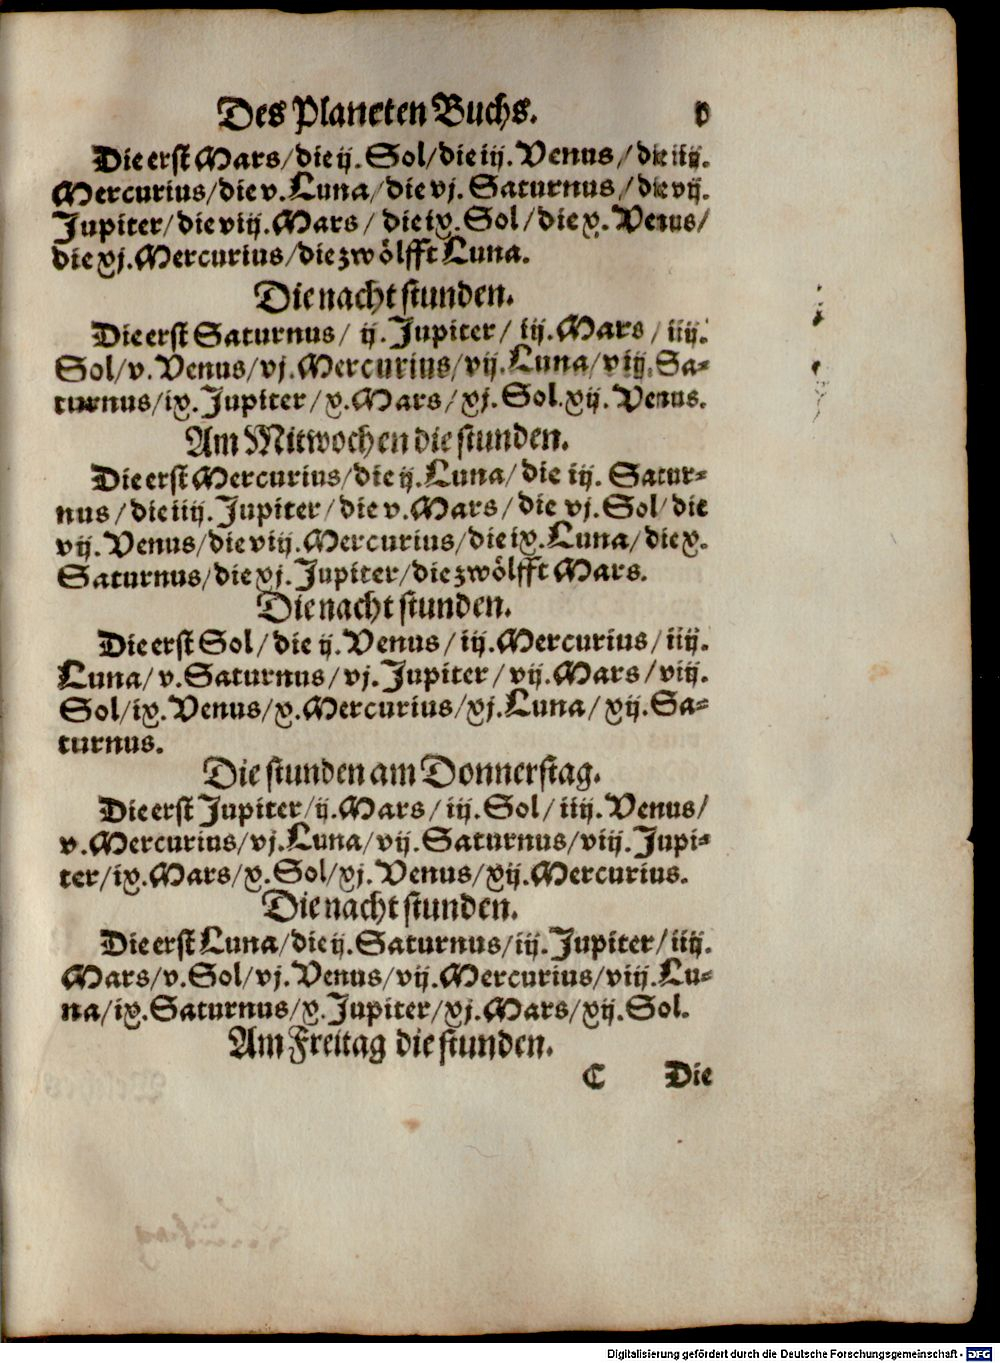 Des Planeten Buchs. v
Die erst Mars/die ij. Sol/die iij. Venus/die iiij.
Mercurius/die v. Luna/die vj. Saturnus/die vij.
Jupiter/die viij. Mars/die ix. Sol/die x. Venus/
die xj. Mercurius/die zwölfft Luna.
Die nacht stunden.
Die erst Saturnus/ ij. Jupiter/ iij. Mars/ iiij.
Sol/v. Venus/vj. Mercurius/vij. Luna/viij. Sa-
turnus/ix. Jupiter/x. Mars/xj. Sol. xij. Venus.
Am Mitwochen die stunden.
Die erst Mercurius/die ij. Luna/die iij. Satur-
nus/die iiij. Jupiter/die v. Mars/die vj. Sol/die
vij. Venus/die viij. Mercurius/die ix. Luna/die x.
Saturnus/die xj. Jupiter/die zwölfft Mars.
Die nacht stunden.
Die erst Sol/die ij. Venus/iij. Mercurius/iiij.
Luna/v. Saturnus/vj. Jupiter/vij. Mars/viij.
Sol/ix. Venus/x. Mercurius/xj. Luna/xij. Sa-
turnus.
Die stunden am Donnerstag.
Die erst Jupiter/ij. Mars/iij. Sol/iiij. Venus/
v. Mercurius/vj. Luna/vij. Saturnus/viij. Jupi-
ter/ix. Mars/x. Sol/xj. Venus/xij. Mercurius.
Die nacht stunden.
Die erst Luna/die ij. Saturnus/iij. Jupiter/iiij.
Mars/v. Sol/vj. Venus/vij. Mercurius/viij. Lu-
na/ix. Saturnus/x. Jupiter/xj. Mars/xij. Sol.
Am Freitag die stunden.
C Die
Digitalisierung gefördert durch die Deutsche Forschungsgemeinschaft - DFG